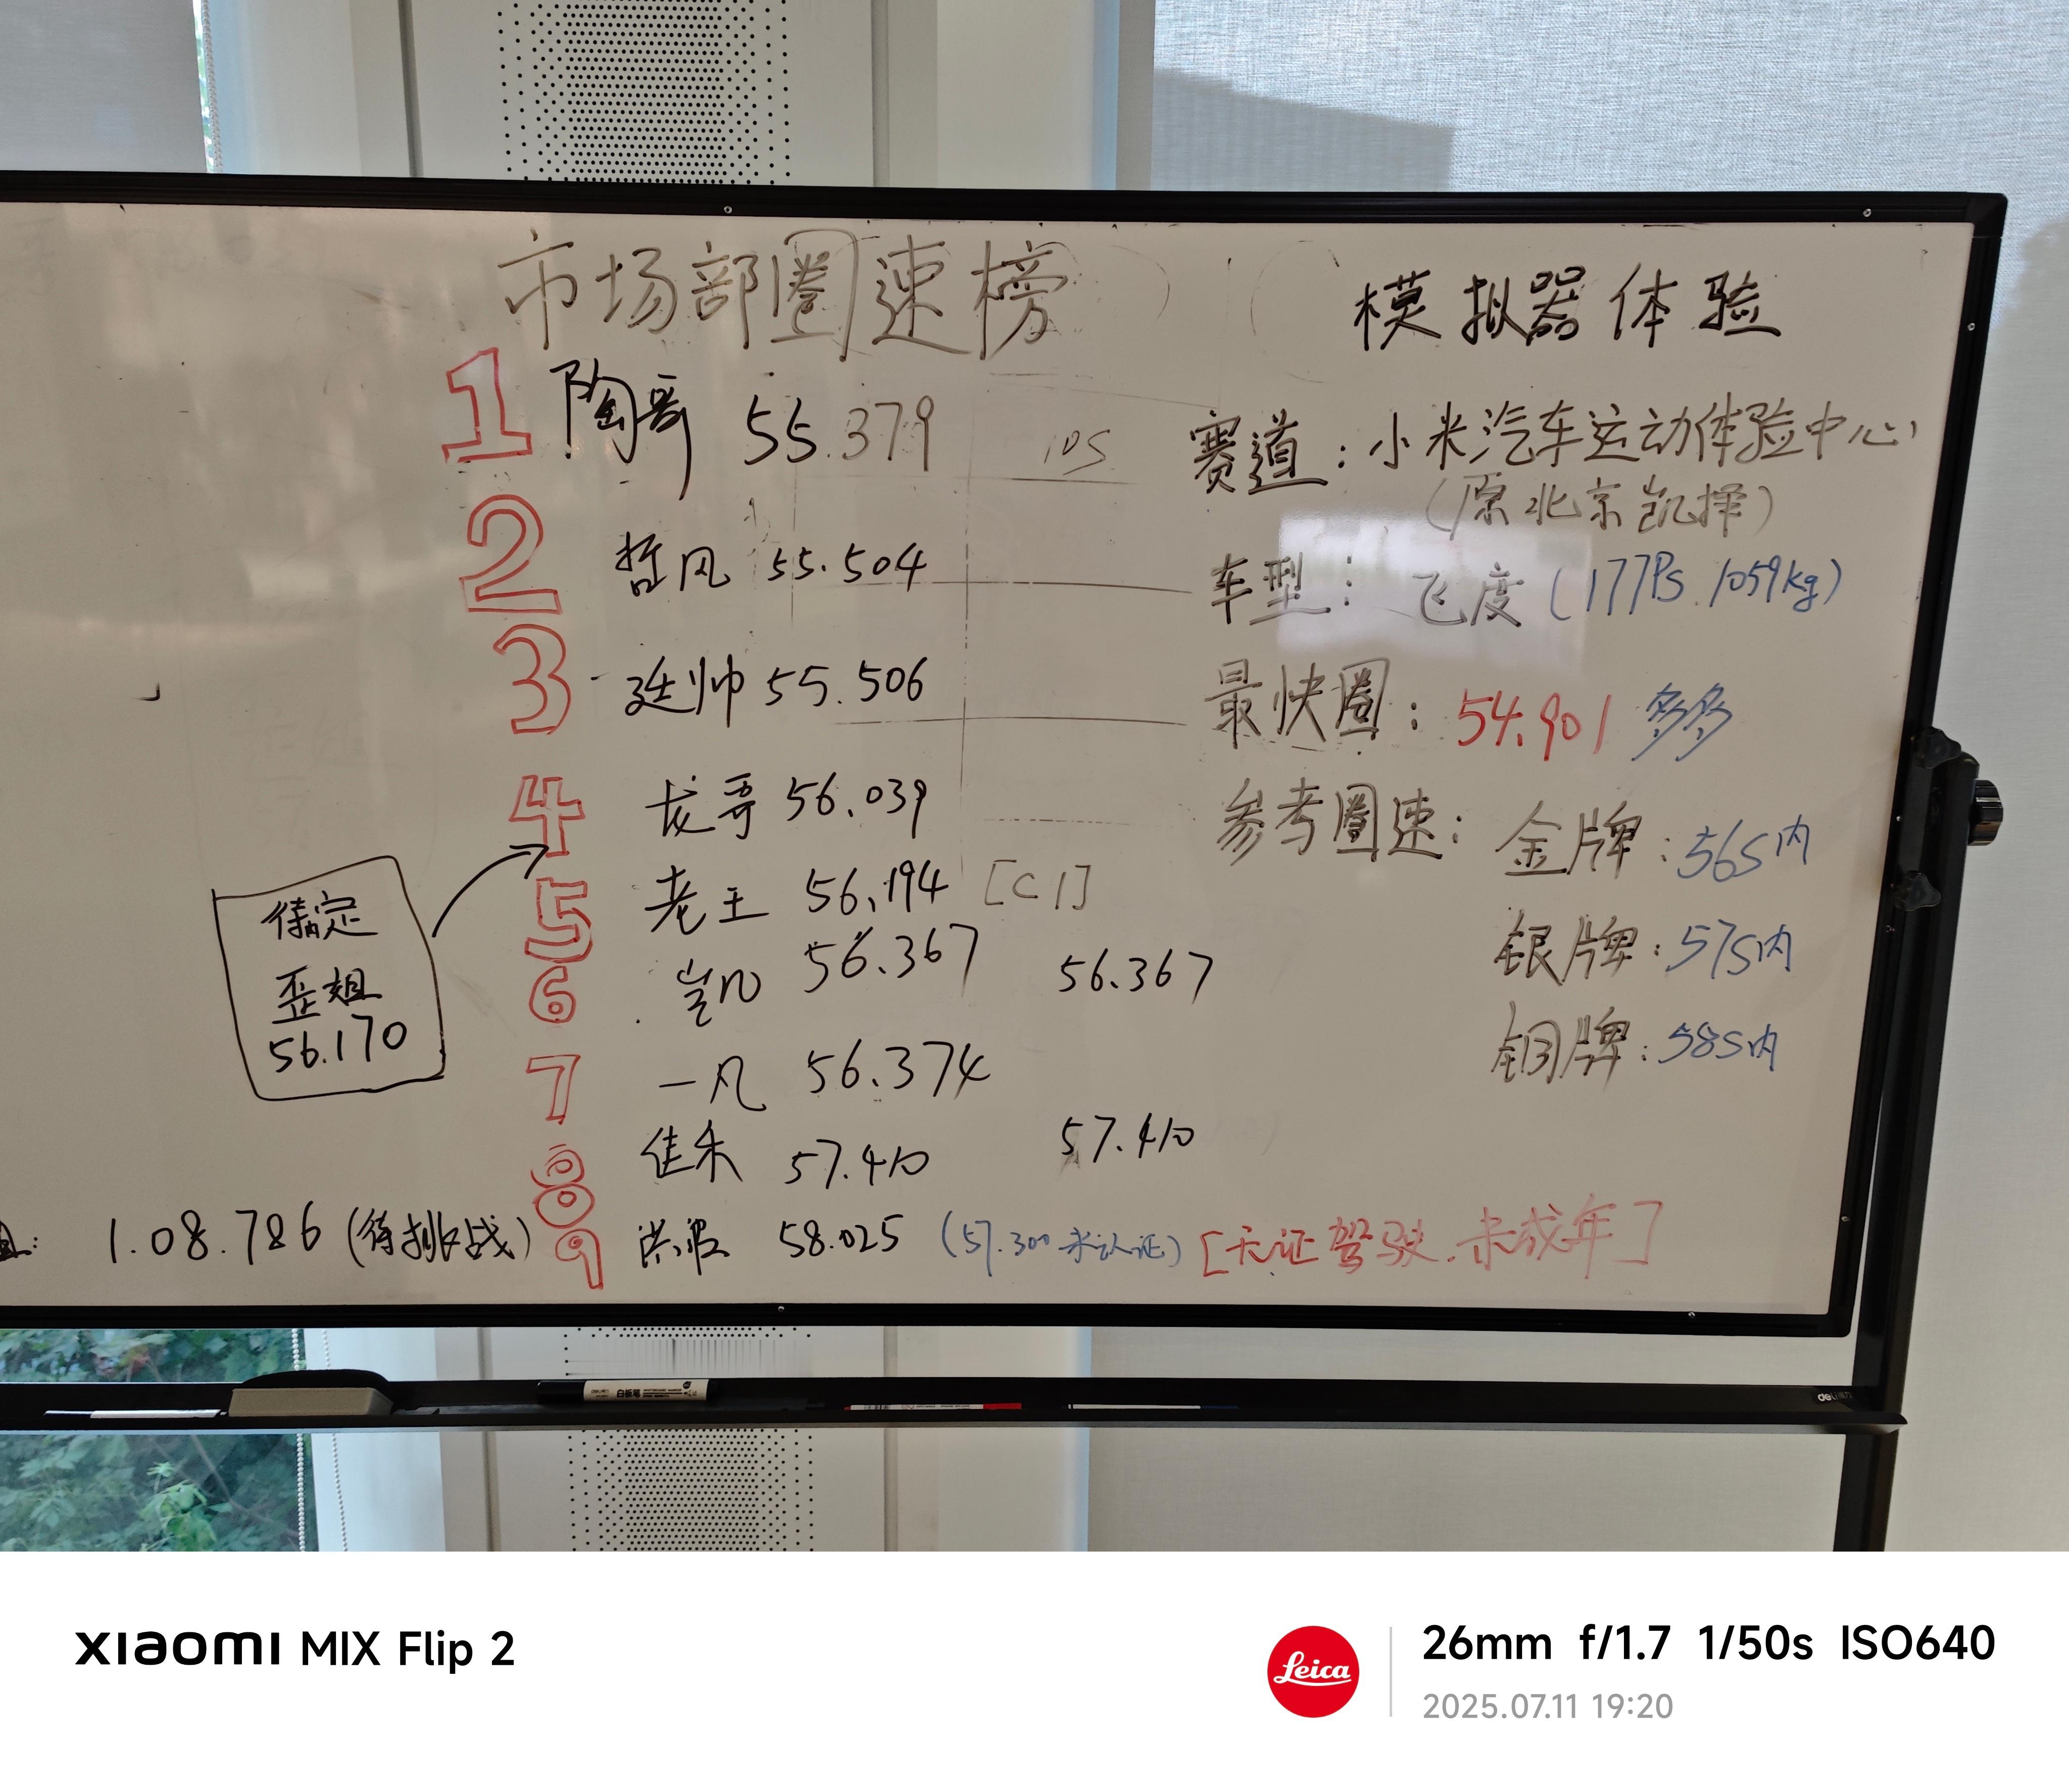 市场部圈速榜
模拟器体验
1 陶哥 55.379
10S
2 哲风 55.504
3 廷帅 55.506
4 龙哥 56.039
5 老王 56.194 [C1]
6 岂凡 56.367 56.367
7 一凡 56.374
8 佳禾 57.410 57.410
9 58.025 (57.300未认证) [无证驾驶.未成年]
待定
歪姐
56.170
1.08.786 (待挑战)
赛道：小米汽车运动体验中心
(原北京凯择)
车型：飞度 (177Ps 1059kg)
最快圈：54.901 多多
参考圈速：金牌：56S内
银牌：57S内
铜牌：58S内
deli
xiaomi MIX Flip 2
Leica
26mm f/1.7 1/50s ISO640
2025.07.11 19:20